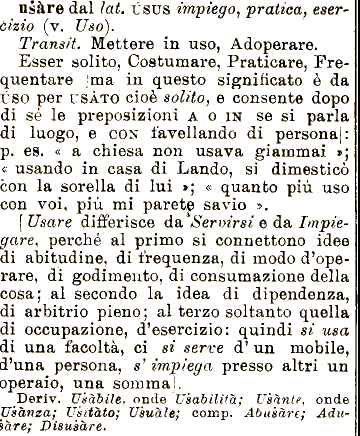 uṡàre dal lat. ÚSUS impiego, pratica, eser-
cizio (v. Uso).
Transit. Mettere in uso, Adoperare.
Esser solito, Costumare, Praticare, Fre-
quentare [ma in questo significato è da
ÚSO per USÀTO cioè solito, e consente dopo
di sè le preposizioni A o IN se si parla
di luogo, e CON favellando di persona]:
p. es. « a chiesa non usava giammai »;
« usando in casa di Lando, si dimesticò
con la sorella di lui »; « quanto più uso
con voi, più mi parete savio ».
[Usare differisce da Servirsi e da Impie-
gare, perchè al primo si connettono idee
di abitudine, di frequenza, di modo d'ope-
rare, di godimento, di consumazione della
cosa; al secondo la idea di dipendenza,
di arbitrio pieno; al terzo soltanto quella
di occupazione, d'esercizio: quindi si usa
di una facoltà, ci si serve d'un mobile,
d'una persona, s'impiega presso altri un
operaio, una somma].
Deriv. Uṡàbile, onde Uṡabilità; Uṡànte, onde
Uṡànza; Uṡitàto; Uṡuàle; comp. Abuṡàre; Adu-
ṡàre; Disuṡàre.